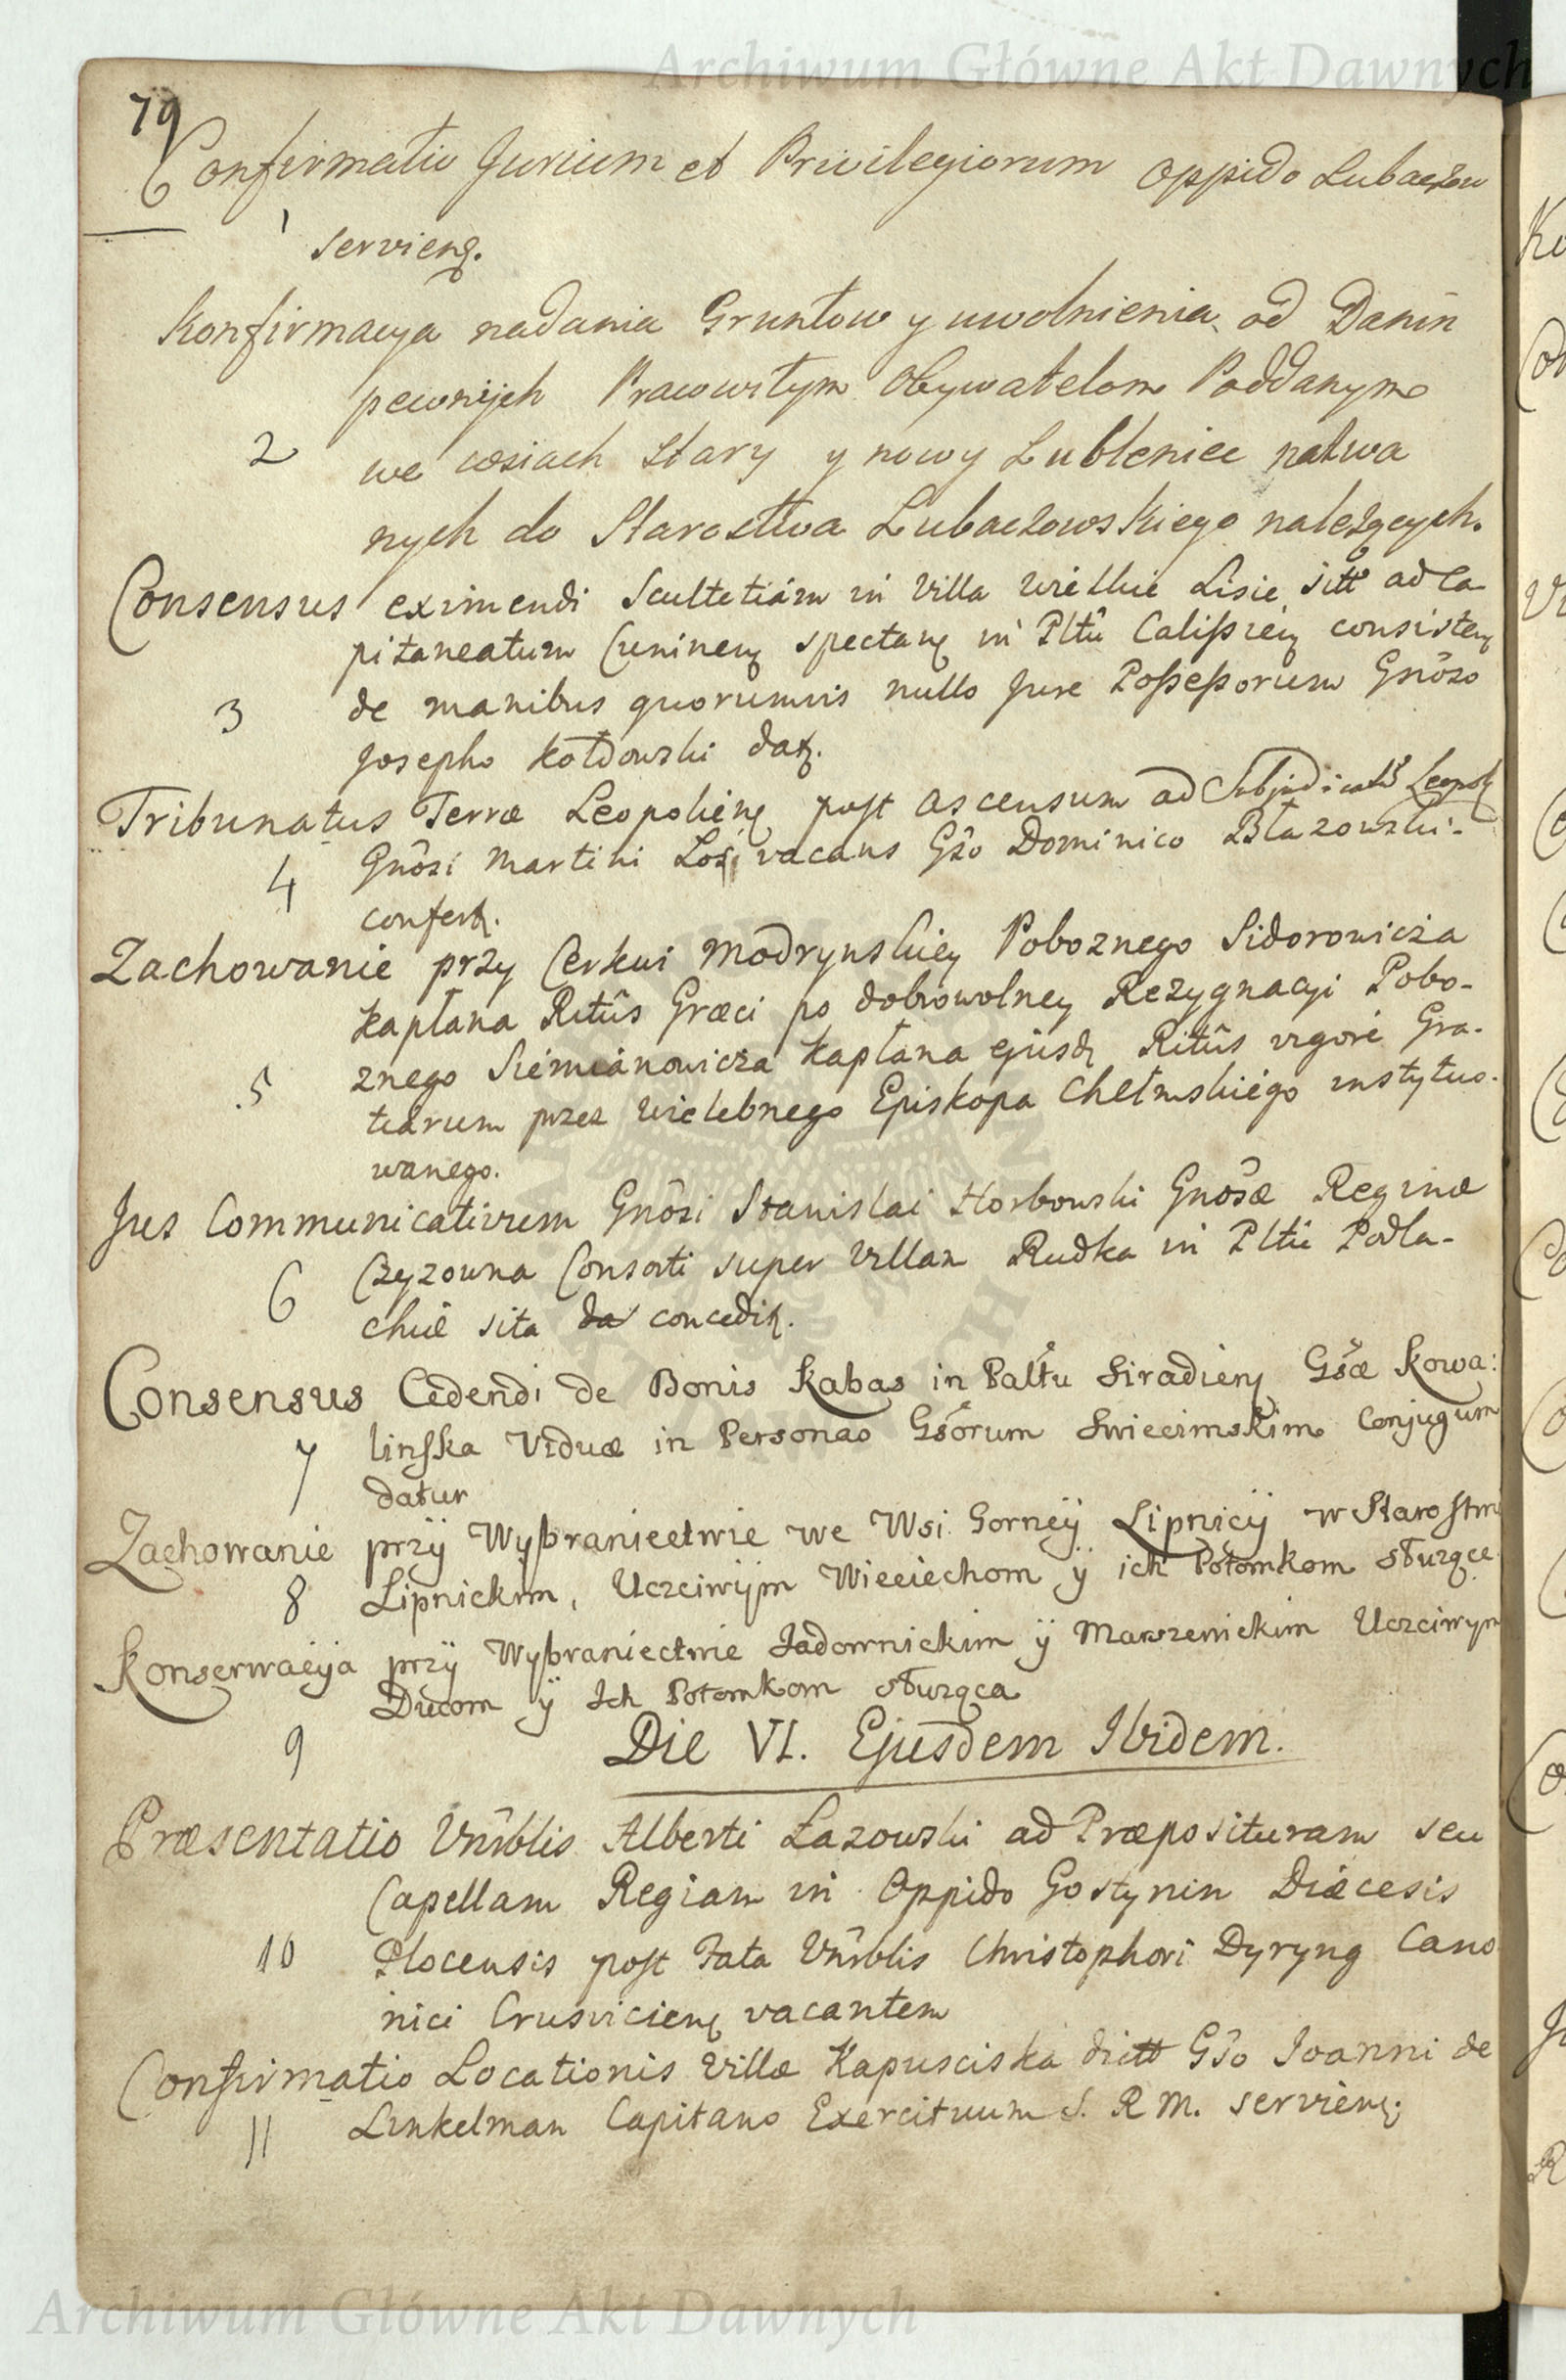 Archiwum Główne Akt Dawnych
79
Confirmatio Jurium et Privilegiorum oppido Lubaczow
1 servienz.
Konfirmacya nadania Gruntow y uwolnienia od Danin
pewnÿch Pracowitym Obywatelom Poddanym
2 we wsiach Stary y nowy Lubleniec natwa
nych do Starostwa Lubaczowskiego należących.
Consensus eximendi Scultetiam in Villa Wielkie Lisie sitt ad Ca-
pitaneatum Cuninenz spectanz in Pltû Calissienz consistenz
3 de manibus quorumvis nullo Jure Possessorum Gnôso
Josepho Kołdowski datz.
Tribunatus Terræ Leopolienz post ascensum ad Subjudicatû Leopolz
4 Gnôsi Martini Łosi vacans Gso Dominico Błazowski-
confertz.
Zachowanie przy Cerkwi Modrynskiey Poboznego Sidorowicza
Kapłana Ritûs Græci po dobrowolney Rezygnacyi Pobo-
5 znego Siemianowicza Kapłana ejusdz Ritûs vigore Gra-
tiarum przez Wielebnego Episkopa Chełmskiego instytuo-
wanego.
Jus Communicativum Gnôsi Stanislai Horbowski Gnôsæ Reginæ
6 Czyzowna Consorti super Villam Rudka in Pltû Podla-
chiæ sita da conceditz.
Consensus Cedendi de Bonis Kabas in Paltu Siradienz Gsæ Kowa:
7 linska Viduæ in Personas Gsorum Swiecimskim Conjugum
datur
Zachowanie przÿ Wÿbraniectwie we Wsi Gorneÿ Lipnicÿ w Starostwi
8 Lipnickim, Uczciwÿm Wieciechom ÿ ich Potomkom słuzące
Konserwacÿa przÿ Wÿbraniectwie Jadownickim ÿ Marszenickim Uczciwym
Ducom ÿ Ich Potomkom słuzqca
9 Die VI. Ejusdem Ibidem.
Præsentatio Vnrblis Alberti Łazowski ad Præposituram seu
Capellam Regiam in Oppido Gostynin Diæcesis
10 Plocensis post Fata Vnrblis Christophori Dyryng Cano
nici Crusvicienz vacantem
Confirmatio Locationis Villæ Kapusciska dictt Gso Joanni de
11 Linkelman Capitano Exercituum S. R M. servienz.
Archiwum Główne Akt Dawnych